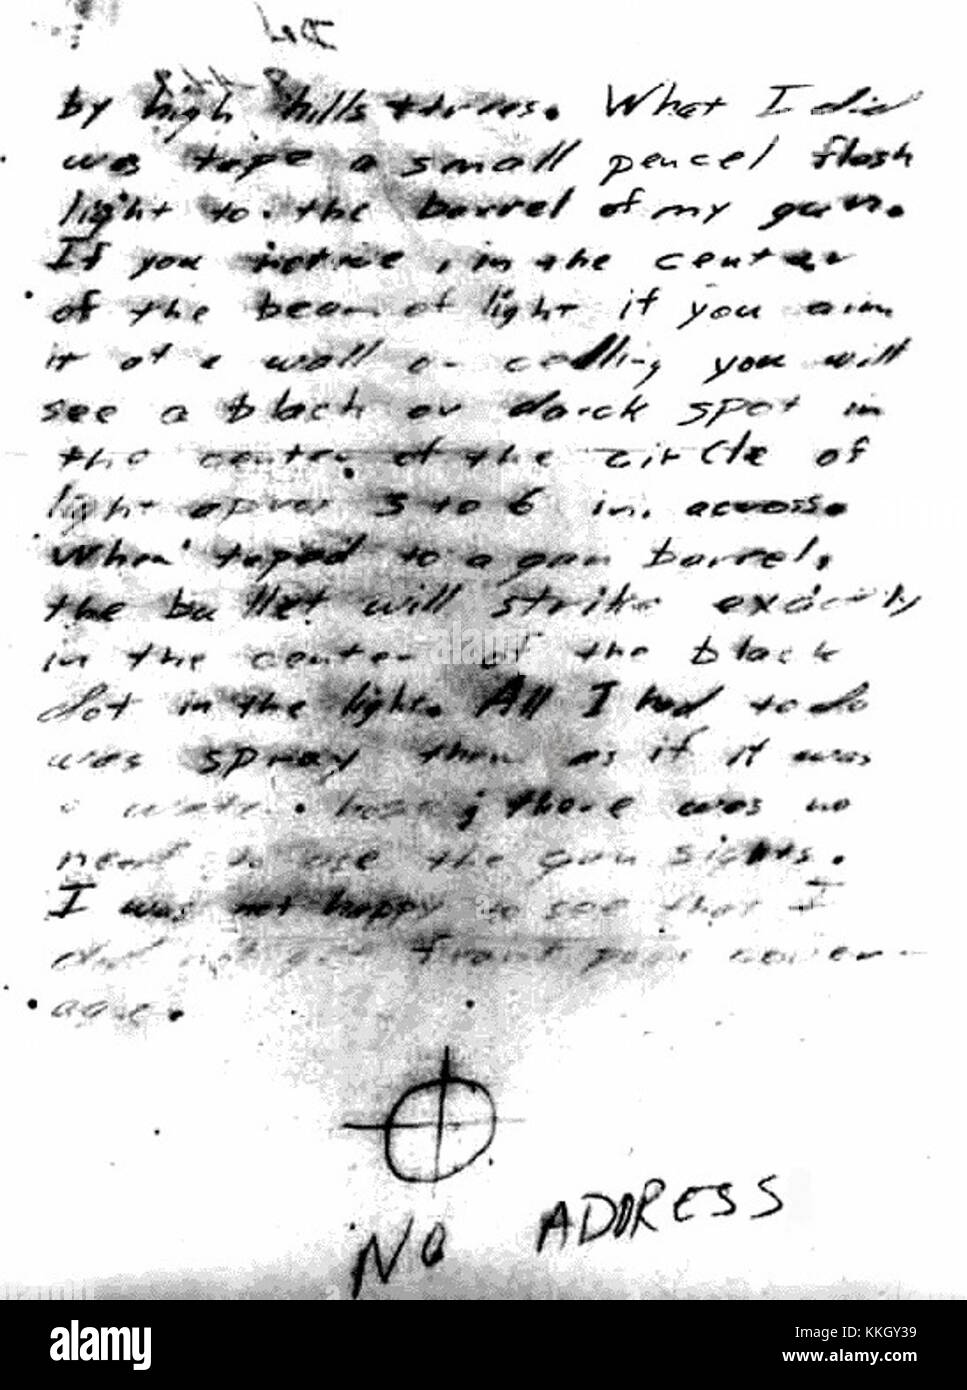 by high hills & trees. What I did
was tape a small pencel flash
light to the barrel of my gun.
If you notice, in the center
of the beam of light if you aim
it at a wall or celling you will
see a black or darck spot in
the center of the circle of
light aprox 3 to 6 in. across.
When taped to a gun barrel,
the bullet will strike exactly
in the center of the black
dot in the light. All I had to do
was spray them as if it was
a water hose; there was no
need to use the gun sights.
I was not happy to see that I
did not get front page cover-
age.
NO ADDRESS
alamy
a
alamy
Image ID: KKGY39
www.alamy.com